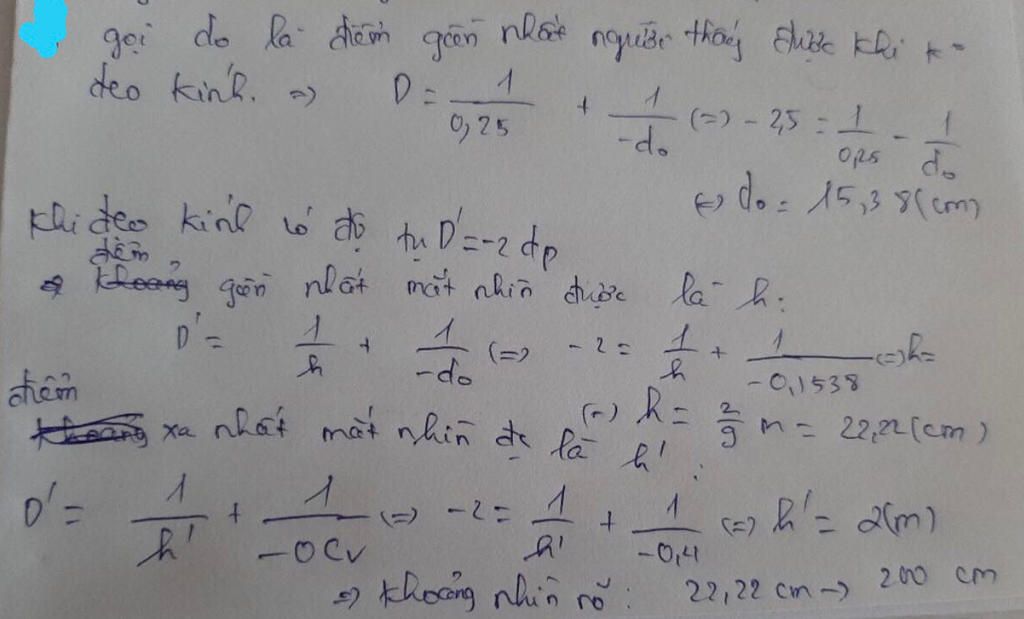 gọi do là điểm gần nhất người thấy được khi k
đeo kính. => D = 1/0,25 + 1/-do (=) - 2,5 = 1/0,25 - 1/do
(=) do = 15,38(cm)
Khi đeo kính có độ tụ D' = -2 dp
điểm
=> khoảng gần nhất mắt nhìn được là h:
D' = 1/h + 1/-do (=) -2 = 1/h + 1/-0,1538 (=) h=
điểm
(=) h = 2/9 m = 22,22(cm)
khoảng xa nhất mắt nhìn đc là h':
D' = 1/h' + 1/-OCv (=) -2 = 1/h' + 1/-0,4 (=) h' = 2(m)
=> khoảng nhìn rõ: 22,22 cm -> 200 cm